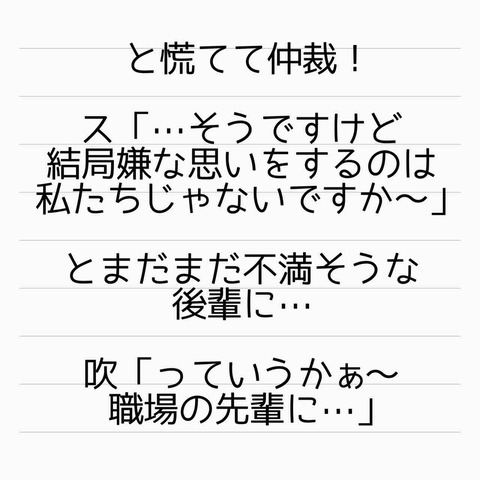 と慌てて仲裁！
ス「…そうですけど
結局嫌な思いをするのは
私たちじゃないですか～」
とまだまだ不満そうな
後輩に…
吹「っていうかぁ～
職場の先輩に…」